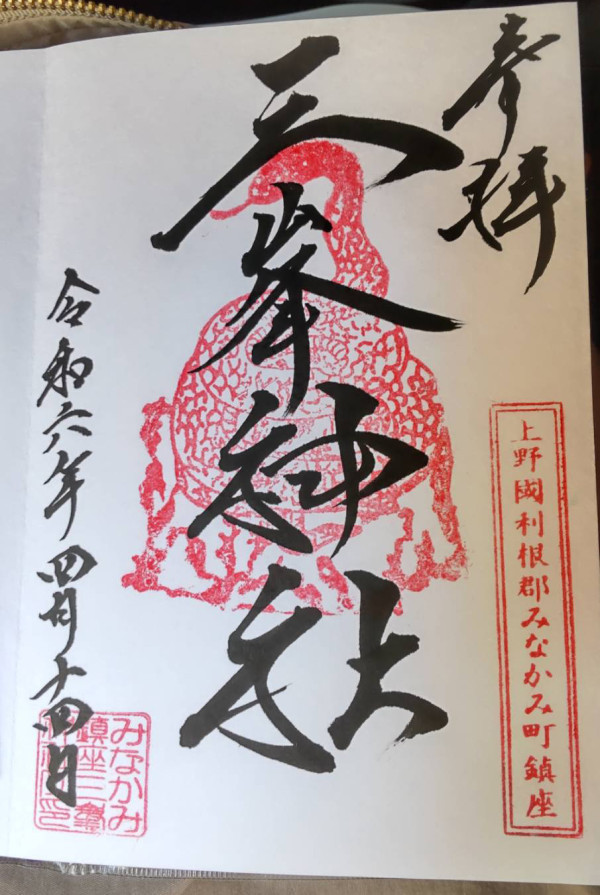 奉拝
上野國利根郡みなかみ町鎮座
三峯神社
令和六年四月十四日
みなかみ
鎮座三峯